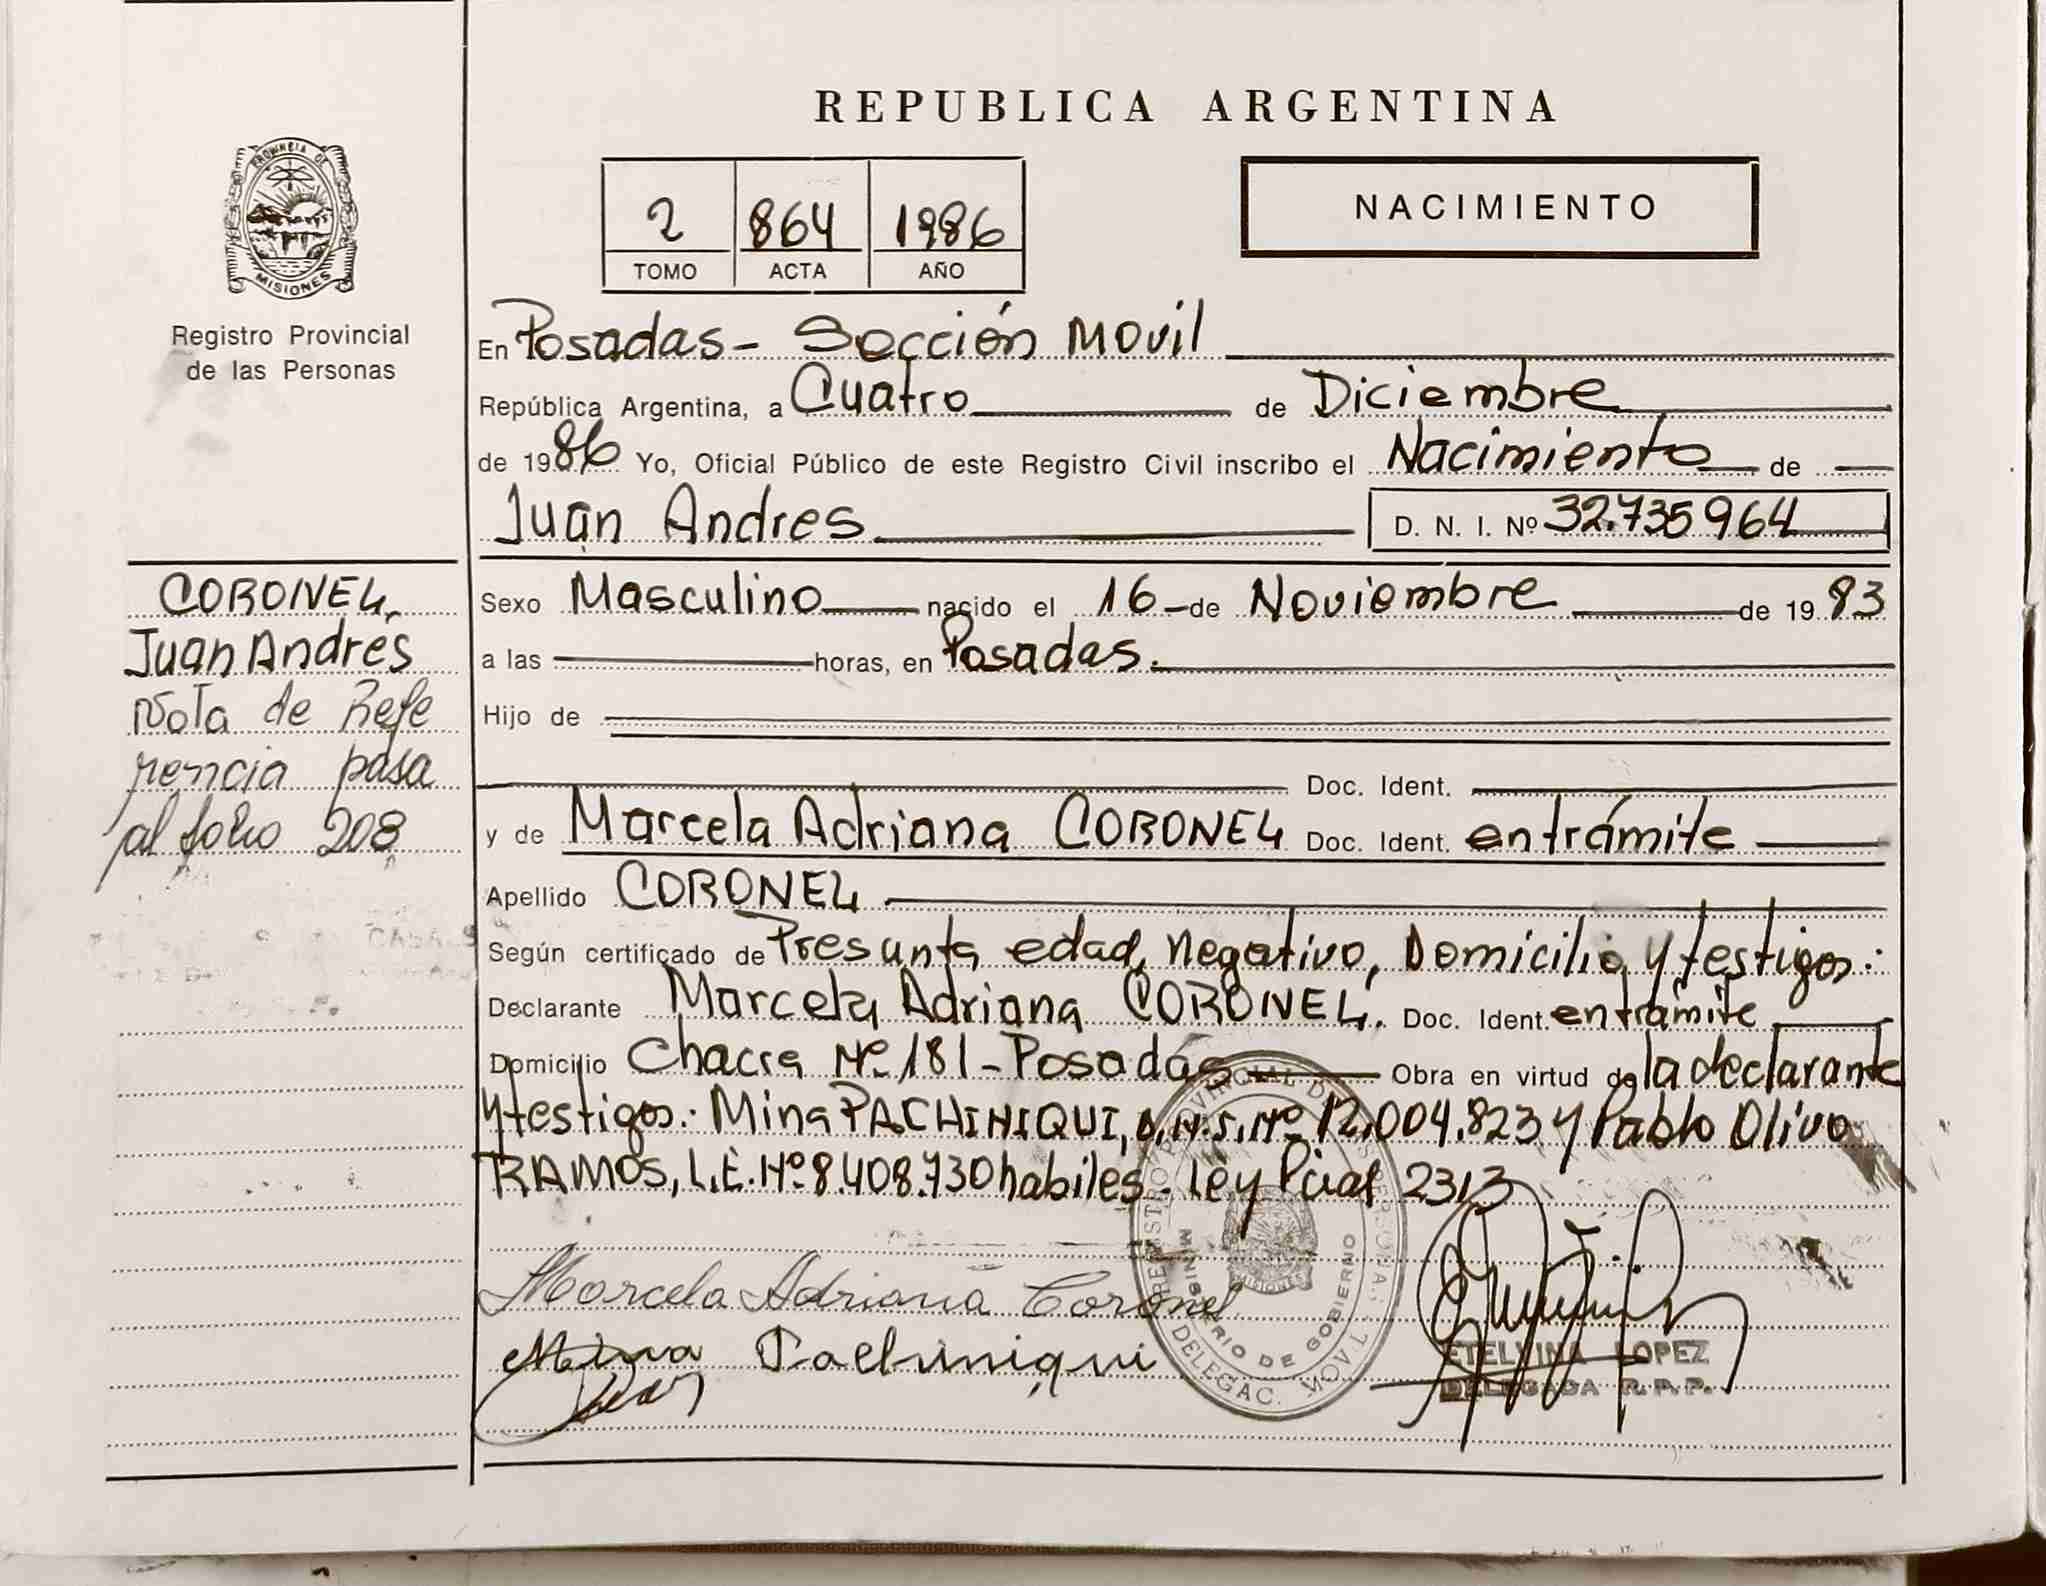 REPUBLICA ARGENTINA
PROVINCIA DE
MISIONES
Registro Provincial
de las Personas
2 864 1986
TOMO ACTA AÑO
NACIMIENTO
En Posadas - Sección Movil
República Argentina, a Cuatro de Diciembre
de 1986 Yo, Oficial Público de este Registro Civil inscribo el Nacimiento de
Juan Andres D. N. I. Nº 32.735964
CORONEL,
Juan Andrés
Nota de Refe
rencia pasa
al folio 208
Sexo Masculino nacido el 16 de Noviembre de 1983
a las horas, en Posadas.
Hijo de
Doc. Ident.
y de Marcela Adriana CORONEL Doc. Ident. en trámite
Apellido CORONEL
Según certificado de Presunta edad, Negativo, Domicilio y testigos:
Declarante Marcela Adriana CORONEL. Doc. Ident. en trámite
Domicilio Chacra Nº 181 - Posadas Obra en virtud de la declarante
y testigos: Mina PACHINIQUI, D.N.I. Nº 12.004.823 y Pablo Olivo
RAMOS, L.E. Nº 8.408.730 habiles - Ley Pcial 2313
Marcela Adriana Coronel
Mina Pachiniqui
REGISTRO PROVINCIAL DE LAS PERSONAS
MINISTERIO DE GOBIERNO
MISIONES
DELEGAC. MOVIL
ETELVINA LOPEZ
DELEGADA R.P.P.